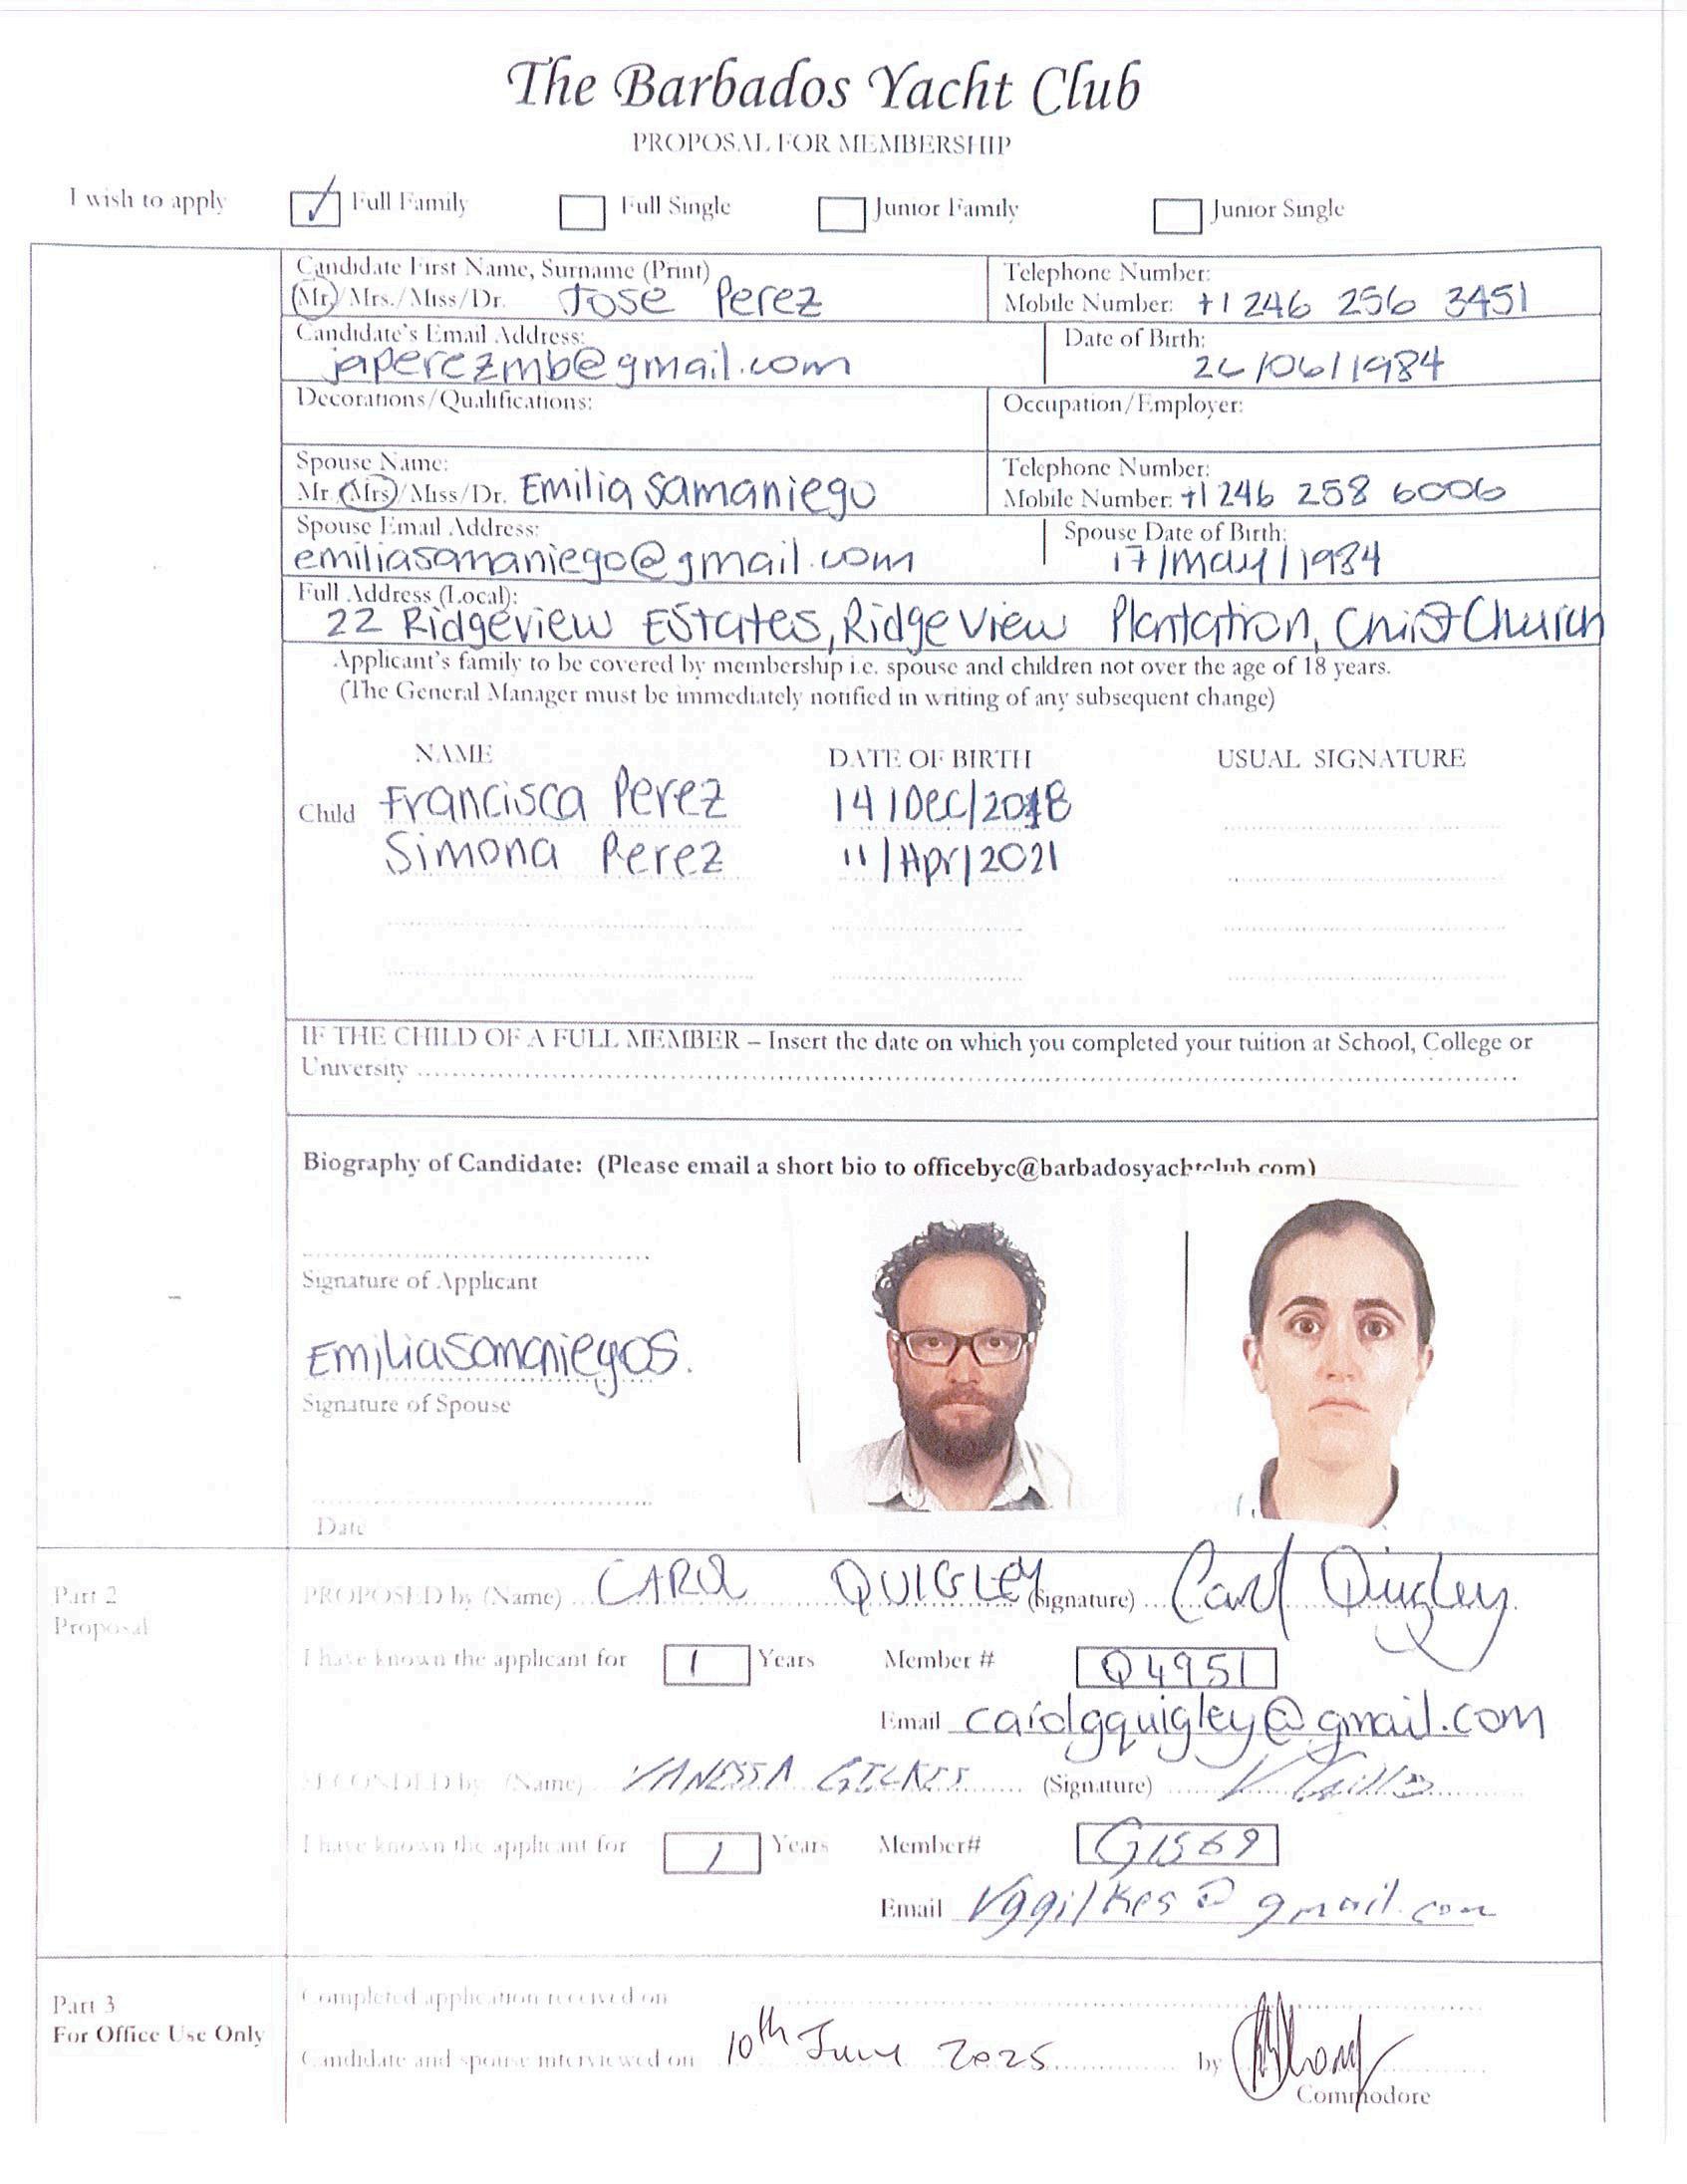 The Barbados Yacht Club
PROPOSAL FOR MEMBERSHIP
I wish to apply Full Family Full Single Junior Family Junior Single
Candidate First Name, Surname (Print) Telephone Number:
Mr/Mrs./Miss/Dr. Jose Perez Mobile Number: +1 246 256 3451
Candidate's Email Address: Date of Birth:
japerezmb@gmail.com /06/1984
Decorations/Qualifications: Occupation/Employer:
Spouse Name: Telephone Number:
Mr (Mrs)/Miss/Dr. Emilia Samaniego Mobile Number: +1 246 258 6006
Spouse Email Address: Spouse Date of Birth:
emiliasamaniego@gmail.com 17/May/1984
Full Address (Local):
22 Ridgeview Estates, Ridge View Plantation, Christ Church
Applicant's family to be covered by membership i.e. spouse and children not over the age of 18 years.
(The General Manager must be immediately notified in writing of any subsequent change)
NAME DATE OF BIRTH USUAL SIGNATURE
Child Francisca Perez 14/Dec/2018
Simona Perez 11/Apr/2021
IF THE CHILD OF A FULL MEMBER – Insert the date on which you completed your tuition at School, College or
University
Biography of Candidate: (Please email a short bio to officebyc@barbadosyachtclub.com)
Signature of Applicant
EmiliaSamaniegoS.
Signature of Spouse
Date
Part 2 PROPOSED by (Name) CAROL QUIGLEY (Signature) Carol Quigley
Proposal
I have known the applicant for 1 Years Member # Q4951
Email carolgquigley@gmail.com
SECONDED by (Name) VANESSA GILKES (Signature)
I have known the applicant for 1 Years Member# G1569
Email vggilkes@gmail.com
Part 3 Completed application received on
For Office Use Only
Candidate and spouse interviewed on 10th June 2025 by
Commodore